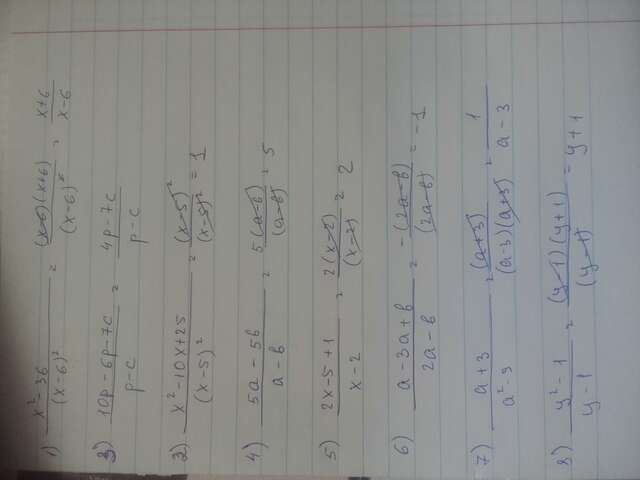 1) x² - 36 / (x-6)² = (x-6)(x+6) / (x-6)² = x+6 / x-6
3) 10p - 6p - 7c / p-c = 4p - 7c / p-c
2) x² - 10x + 25 / (x-5)² = (x-5)² / (x-5)² = 1
4) 5a - 5b / a-b = 5(a-b) / (a-b) = 5
5) 2x - 5 + 1 / x-2 = 2(x-2) / (x-2) = 2
6) a - 3a + b / 2a - b = -(2a-b) / (2a-b) = -1
7) a+3 / a² - 9 = (a+3) / (a-3)(a+3) = 1 / a-3
8) y² - 1 / y-1 = (y-1)(y+1) / (y-1) = y+1